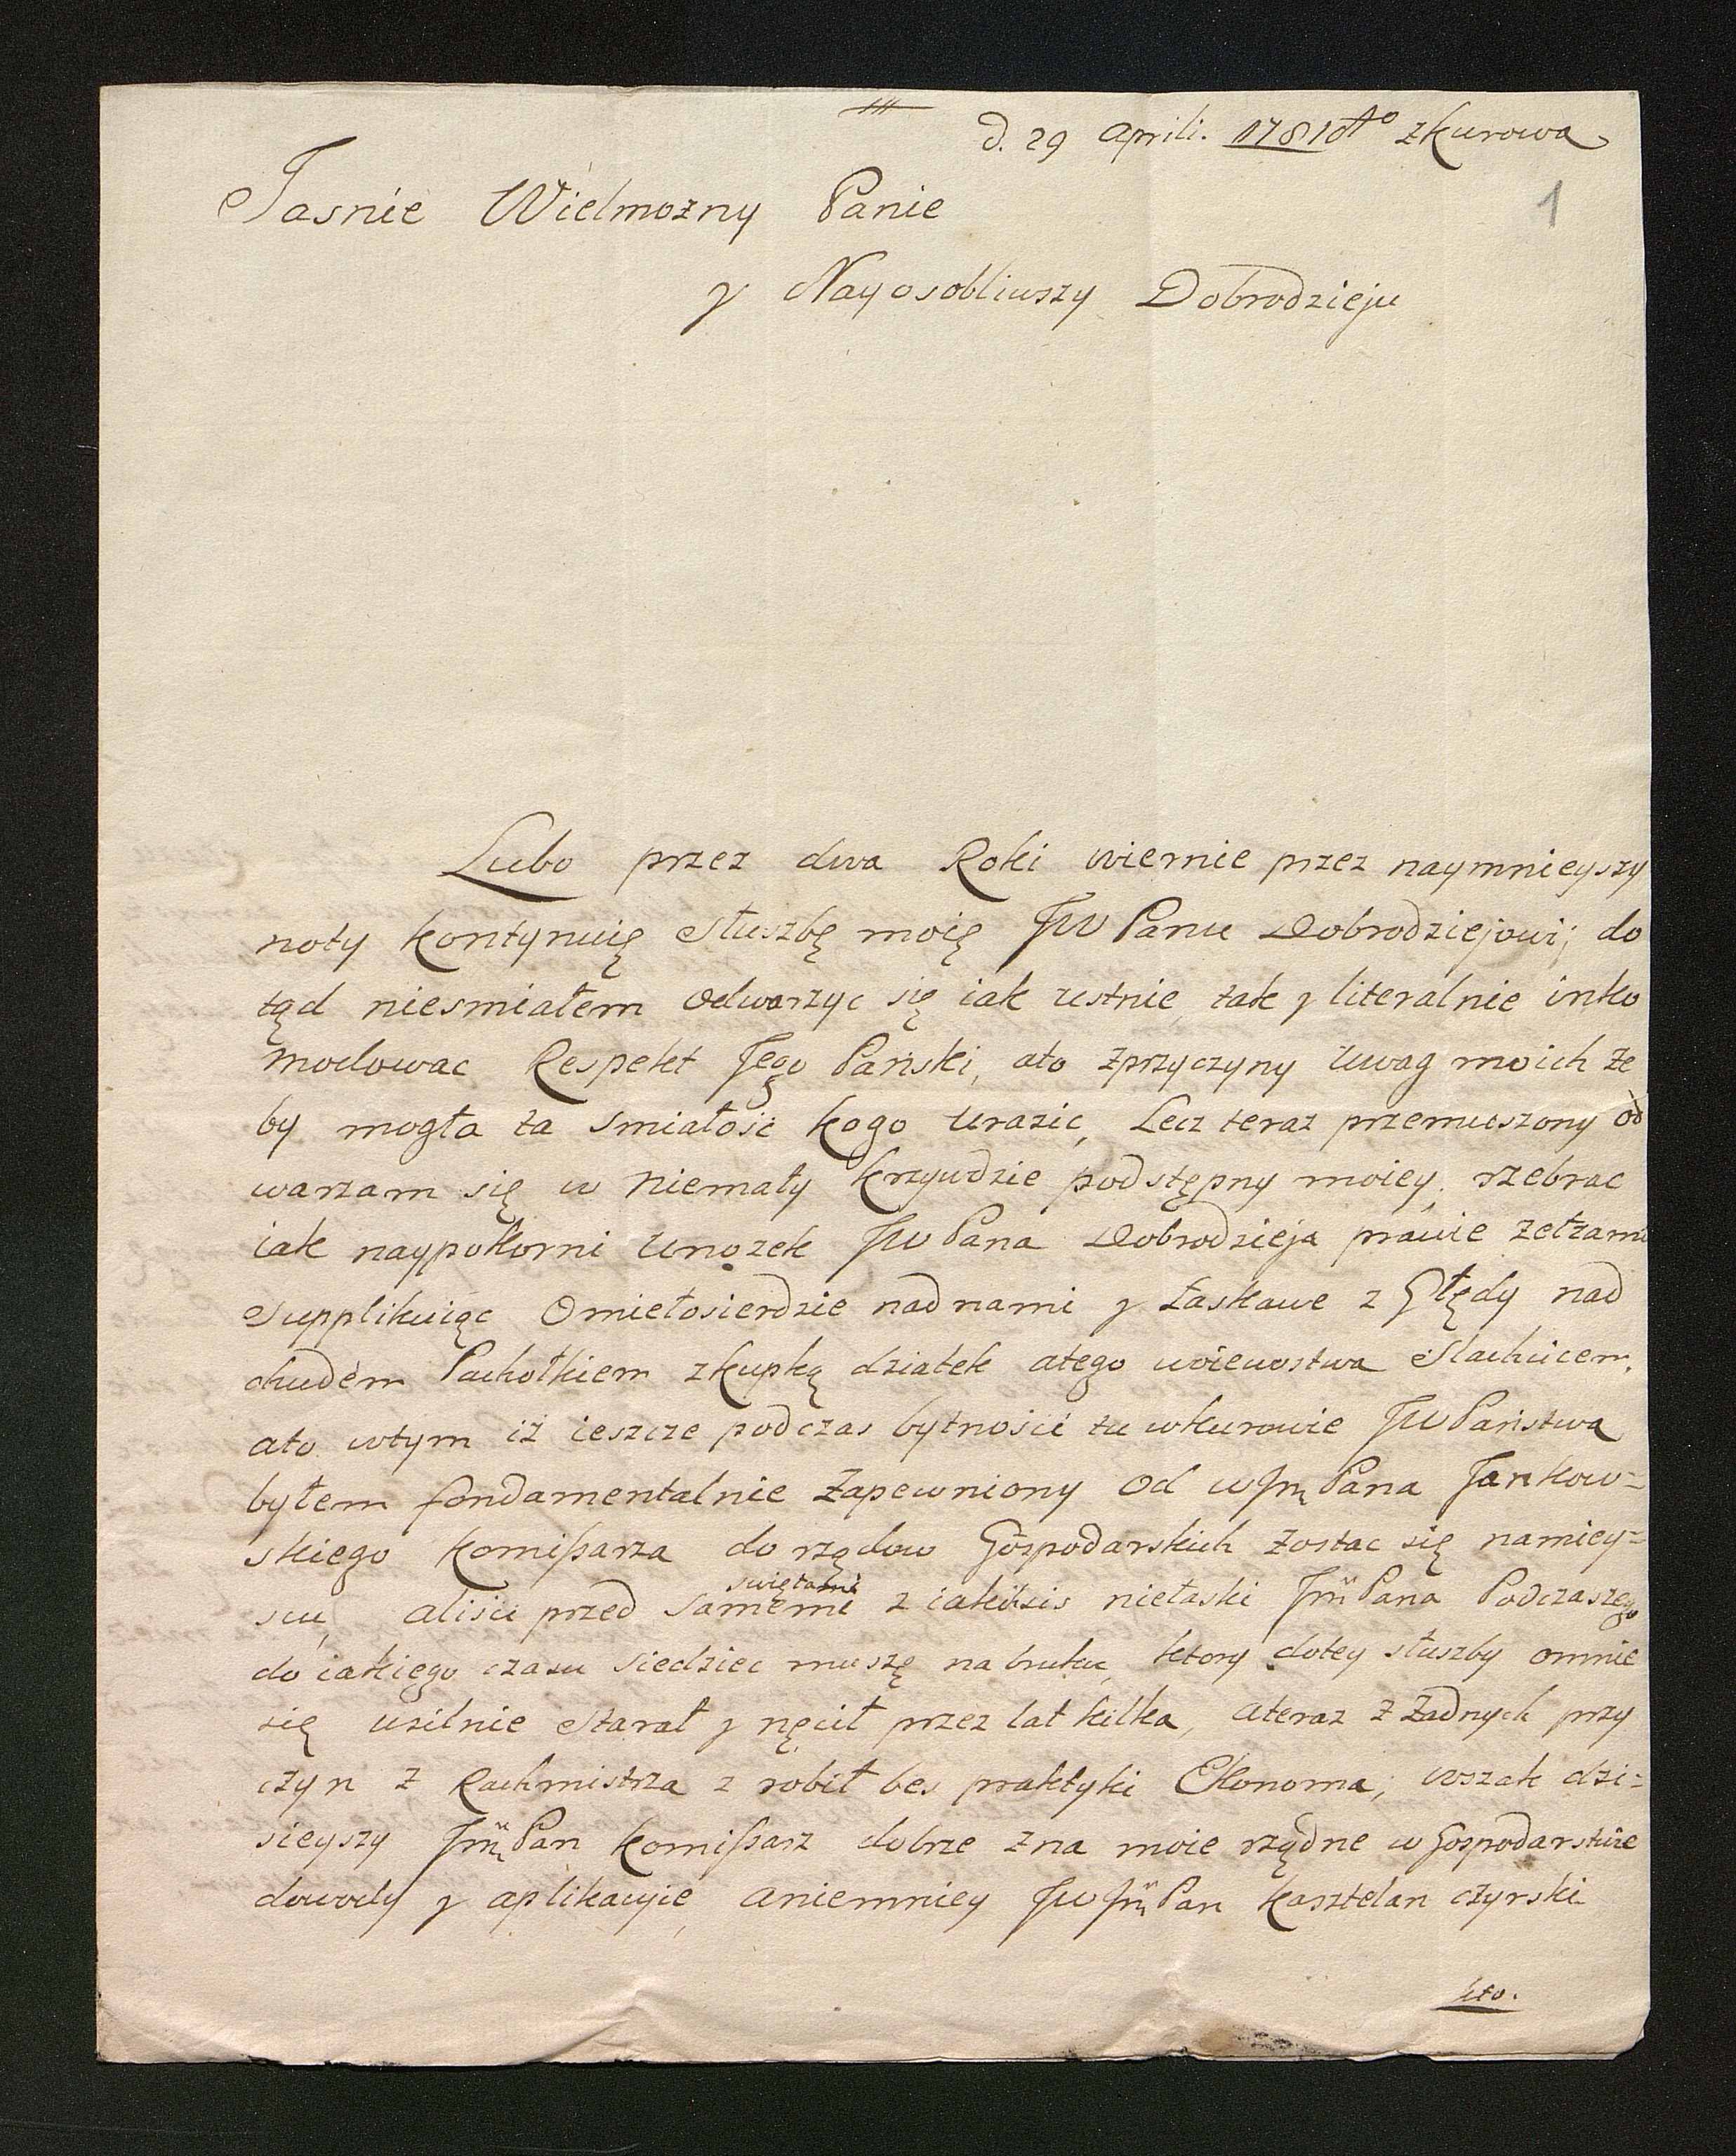 d. 29 Aprili. 1781 dto zkurowa
1
Jasnie Wielmozny Panie
y Nayosobliwszy Dobrodzieju
Lubo przez dwa Roki wiernie przez naymnieyszy
noty kontynuię słuszbę moię JW Panu Dobrodziejowi; do
tąd niesmiałem odwarzyc się iak ustnie, tak y literalnie inko
modowac Respekt Jego Pański, ato zprzyczyny uwag moich ze
by mogła ta smiałość kogo urazic, Lecz teraz przemuszony od
warzam się w niemały krzywdzie podstępny moiey, rzebrac
iak naypokorni unozek JW Pana Dobrodzieja prawie zełzami
supplikuiąc Omiełosierdzie nad nami y Łaskawe z Ględy nad
chudem Pachołkiem zkupką dziatek atego woiewostwa slachcicem,
ato wtym iż ieszcze podczas bytności tu wkurowie JW Państwa
byłem fondamentalnie Zapewniony od WJm Pana Jankow=
skiego komißarza do rządow Gospodarskich zostac się namiey=
scu, aliści przed samemi świętami z iakiisis niełaski Jm Pana Podczaszego
do iakiego czasu siedziec muszę na bruku, ktory dotey słuszby omnie
się usilnie starał y nęcił przez lat kilka, ateraz z Żadnych przy
czyn z Rachmistrza z robił bes praktyki Ekonoma; wszak dzi=
sieyszy Jm Pan komißarz dobrze zna moie rządne w Gospodarstwie
dowody y aplikacyie, aniemniey JW Jm Pan kasztelan czyrski
kto.